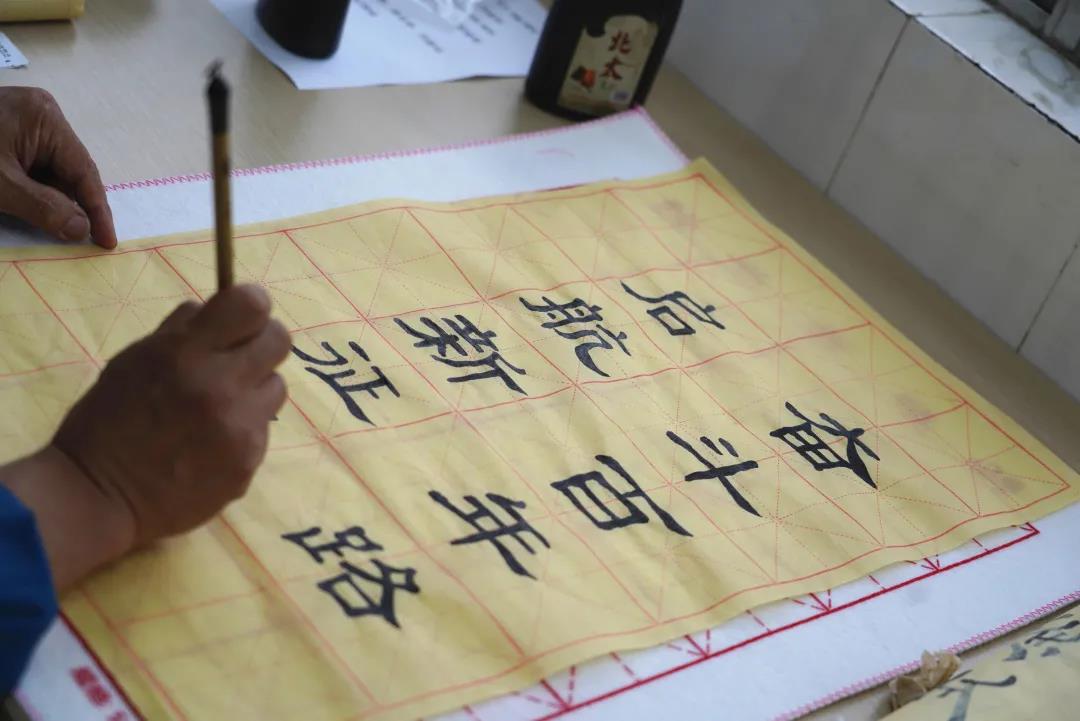 奋斗百年路
启航新征
北太